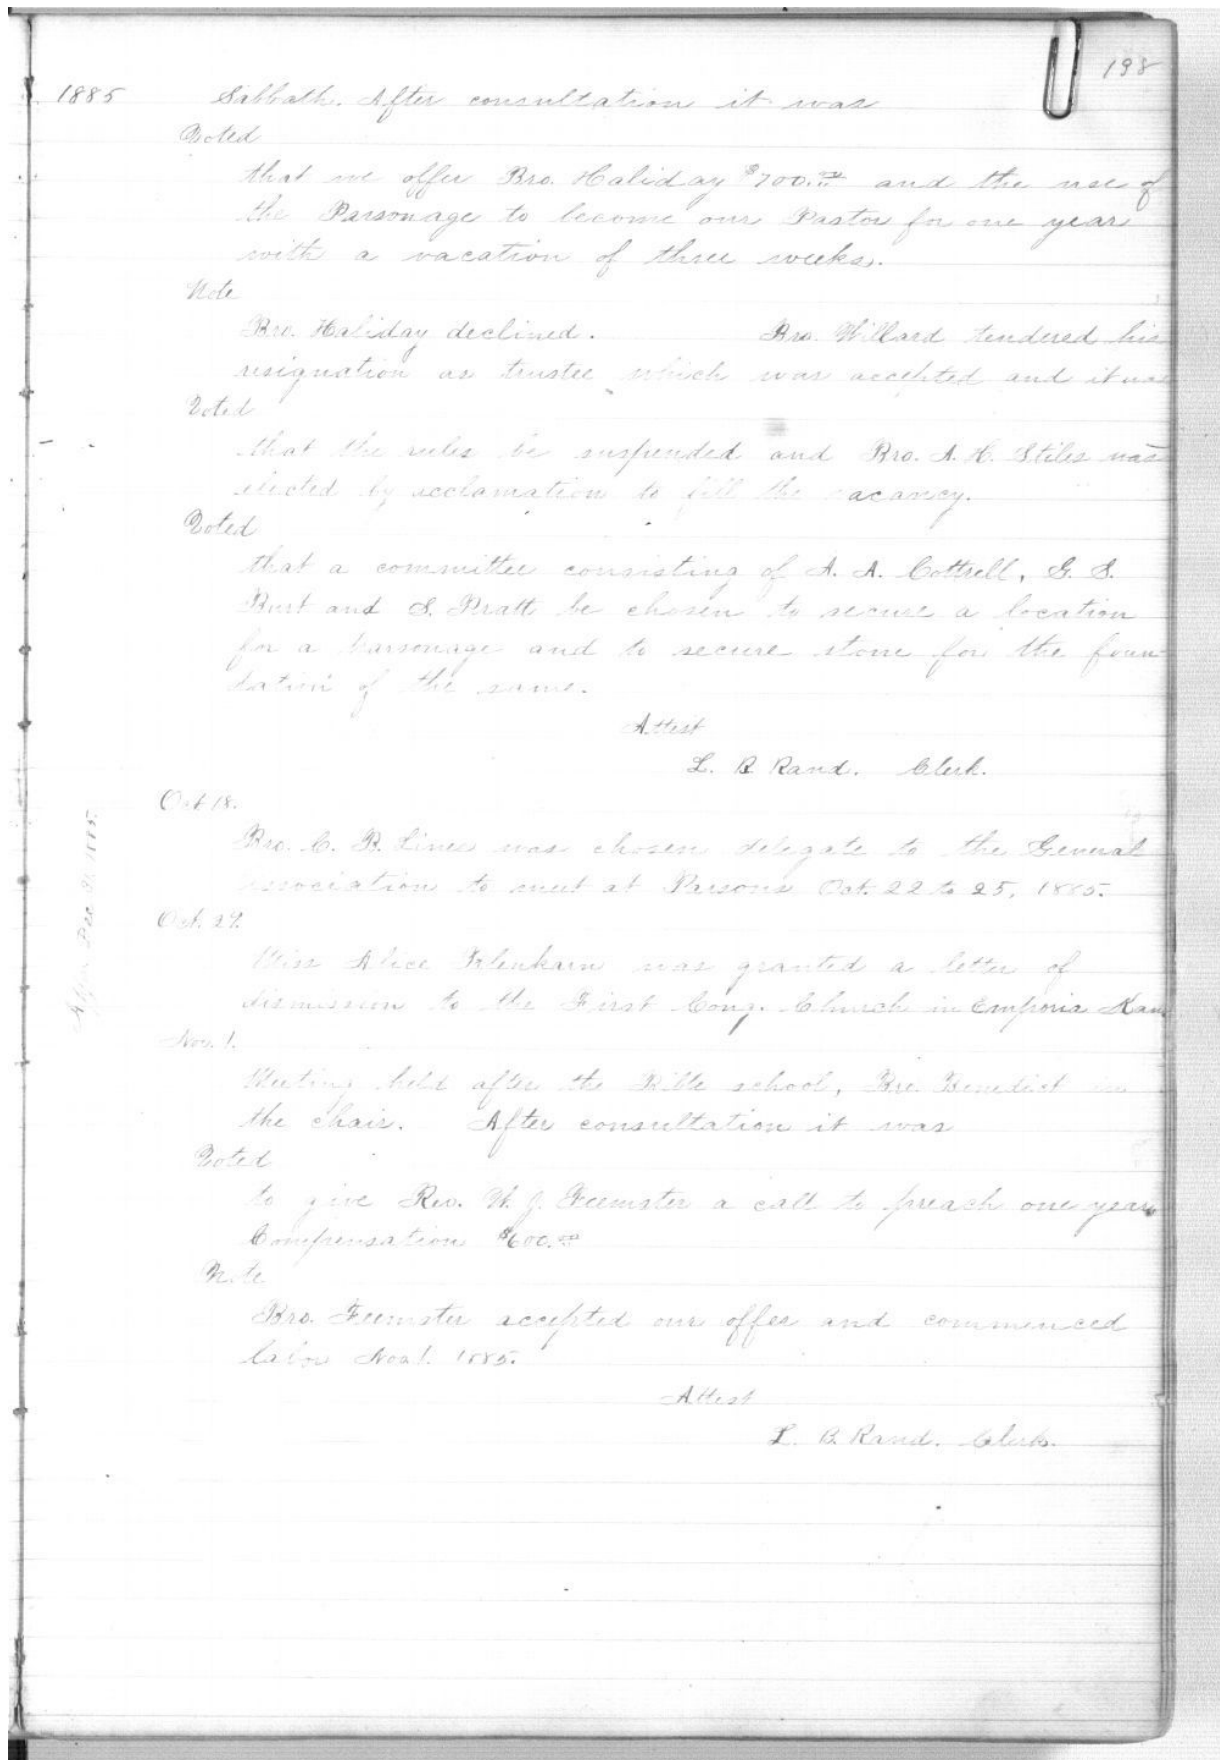 198
1885 Sabbath. After consultation it was
Voted
that we offer Bro. Haliday $700.00 and the use of
the Parsonage to become our Pastor for one year
with a vacation of three weeks.
Note
Bro. Haliday declined. Bro. Willard tendered his
resignation as trustee which was accepted and it was
Voted
that the rules be suspended and Bro. A. H. Stiles was
elected by acclamation to fill the vacancy.
Voted
that a committee consisting of A. A. Cottrell, G. S.
Burt and S. Pratt be chosen to secure a location
for a parsonage and to secure stone for the foun-
dation of the same.
Attest
L. B. Rand. Clerk.
Oct 18.
Bro. C. B. Lines was chosen delegate to the General
Association to meet at Parsons Oct. 22 to 25, 1885.
Oct. 29.
Miss Alice was granted a letter of
dismission to the First Cong. Church in Emporia Kan
Nov. 1.
Meeting held after the Bible school, Bro. Benedict in
the chair. After consultation it was
Voted
to give Rev. W. J. Feemster a call to preach one year
Compensation $600.00
Note
Bro. Feemster accepted our offer and commenced
labor Nov 1. 1885.
Attest
L. B. Rand. Clerk.
Dec. 31, 1885